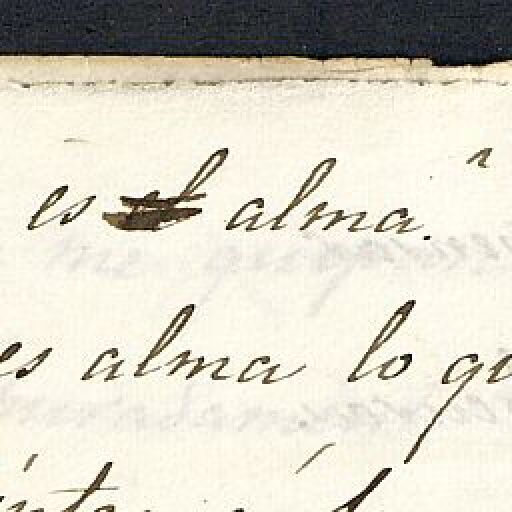 es el alma."
es alma lo qu